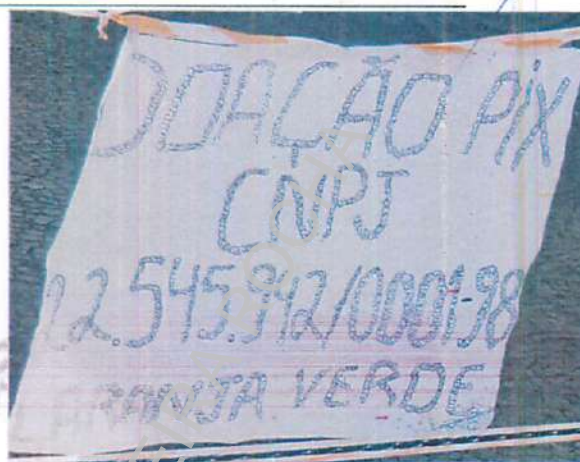 DOAÇÃO PIX
CNPJ
12.545.942/0001-98
VERDE